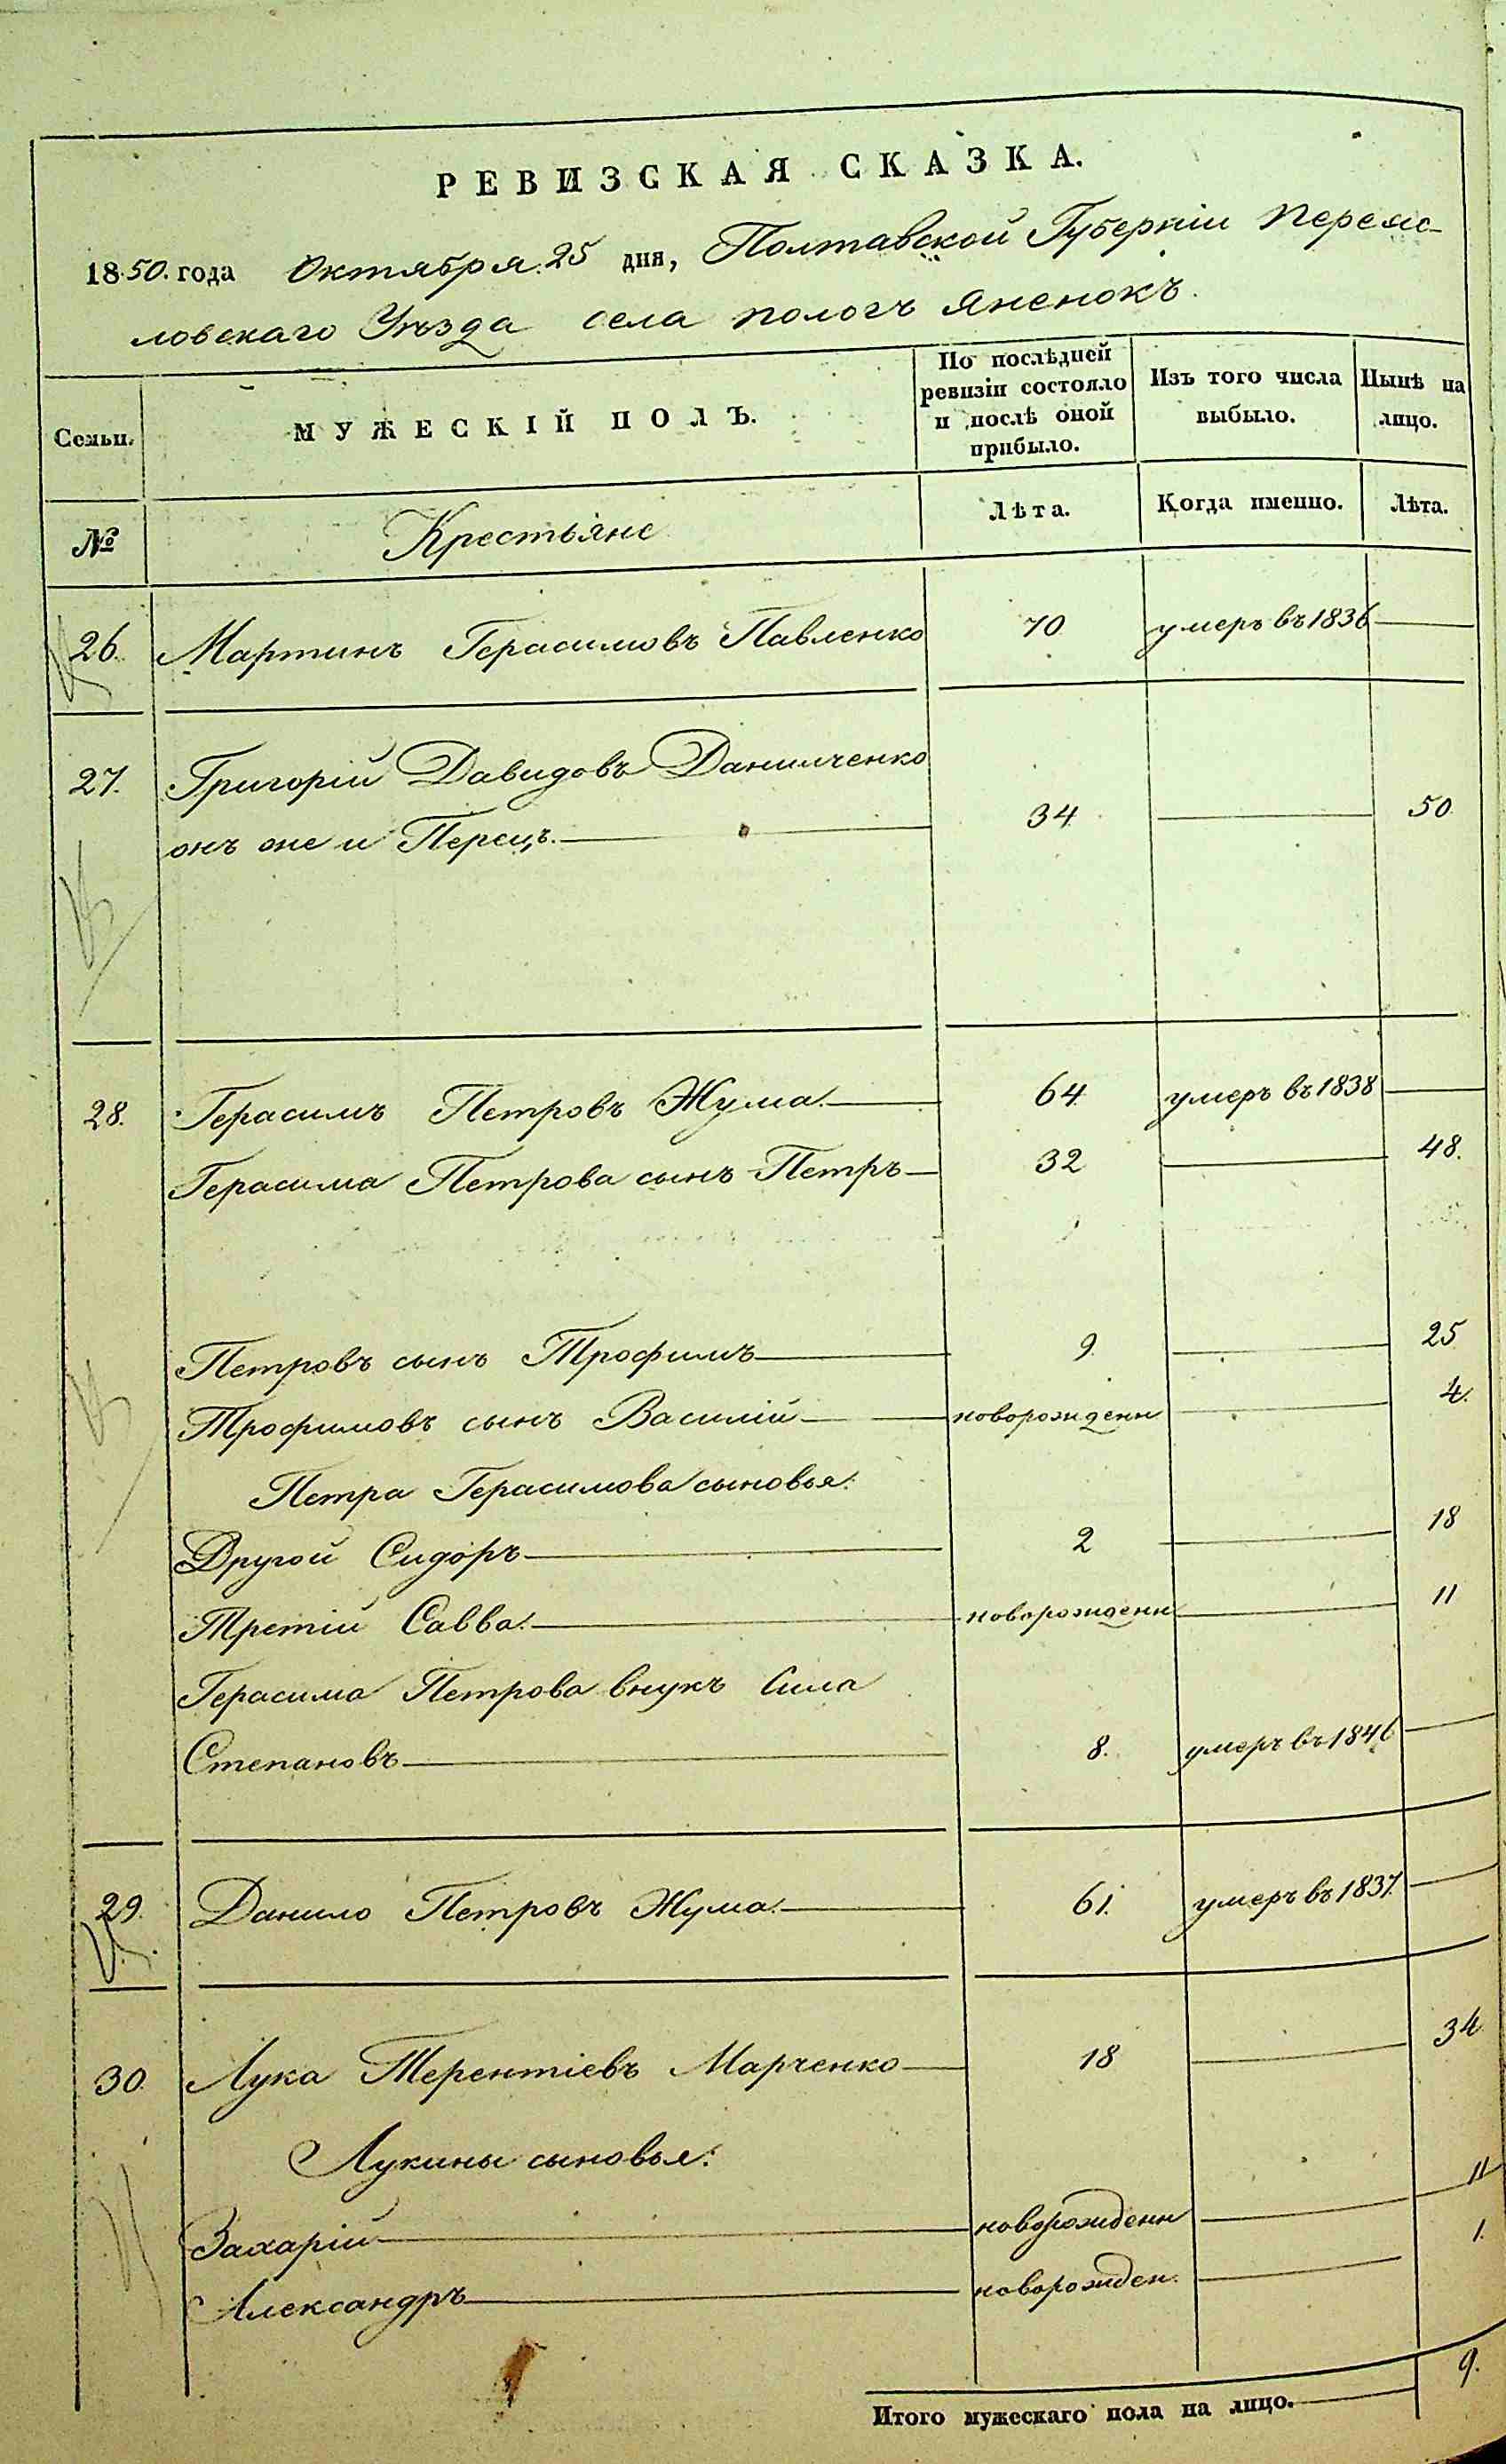 РЕВИЗСКАЯ СКАЗКА.
1850. года Октября 25 дня, Полтавской Губерніи Переяс-
ловскаго Уѣзда села пологъ Яненокъ.
Семьи. МУЖЕСКІЙ ПОЛЪ. По послѣдней ревизіи состояло и послѣ оной прибыло. Изъ того числа выбыло. Нынѣ на лицо.
№ Крестьяне Лѣта. Когда именно. Лѣта.
26. Мартинъ Герасимовъ Павленко 70 умеръ въ 1836
27. Григорій Давидовъ Данилченко
онъ же и Перецъ. 34 50
28. Герасимъ Петровъ Жума. 64 умеръ въ 1838
Герасима Петрова сынъ Петръ 32 48.
Петровъ сынъ Трофимъ 9. 25
Трофимовъ сынъ Василій новорожденн 4.
Петра Герасимова сыновья:
Другой Сидоръ 2 18
Третій Савва. новорожденн 11
Герасима Петрова внукъ Сила
Степановъ 8. умеръ въ 1846
29. Данило Петровъ Жума. 61. умеръ въ 1837.
30. Лука Терентіевъ Марченко 18 34
Лукины сыновья:
Захарій новорожденн 11
Александръ новорожден. 1.
Итого мужескаго пола на лицо. 9.